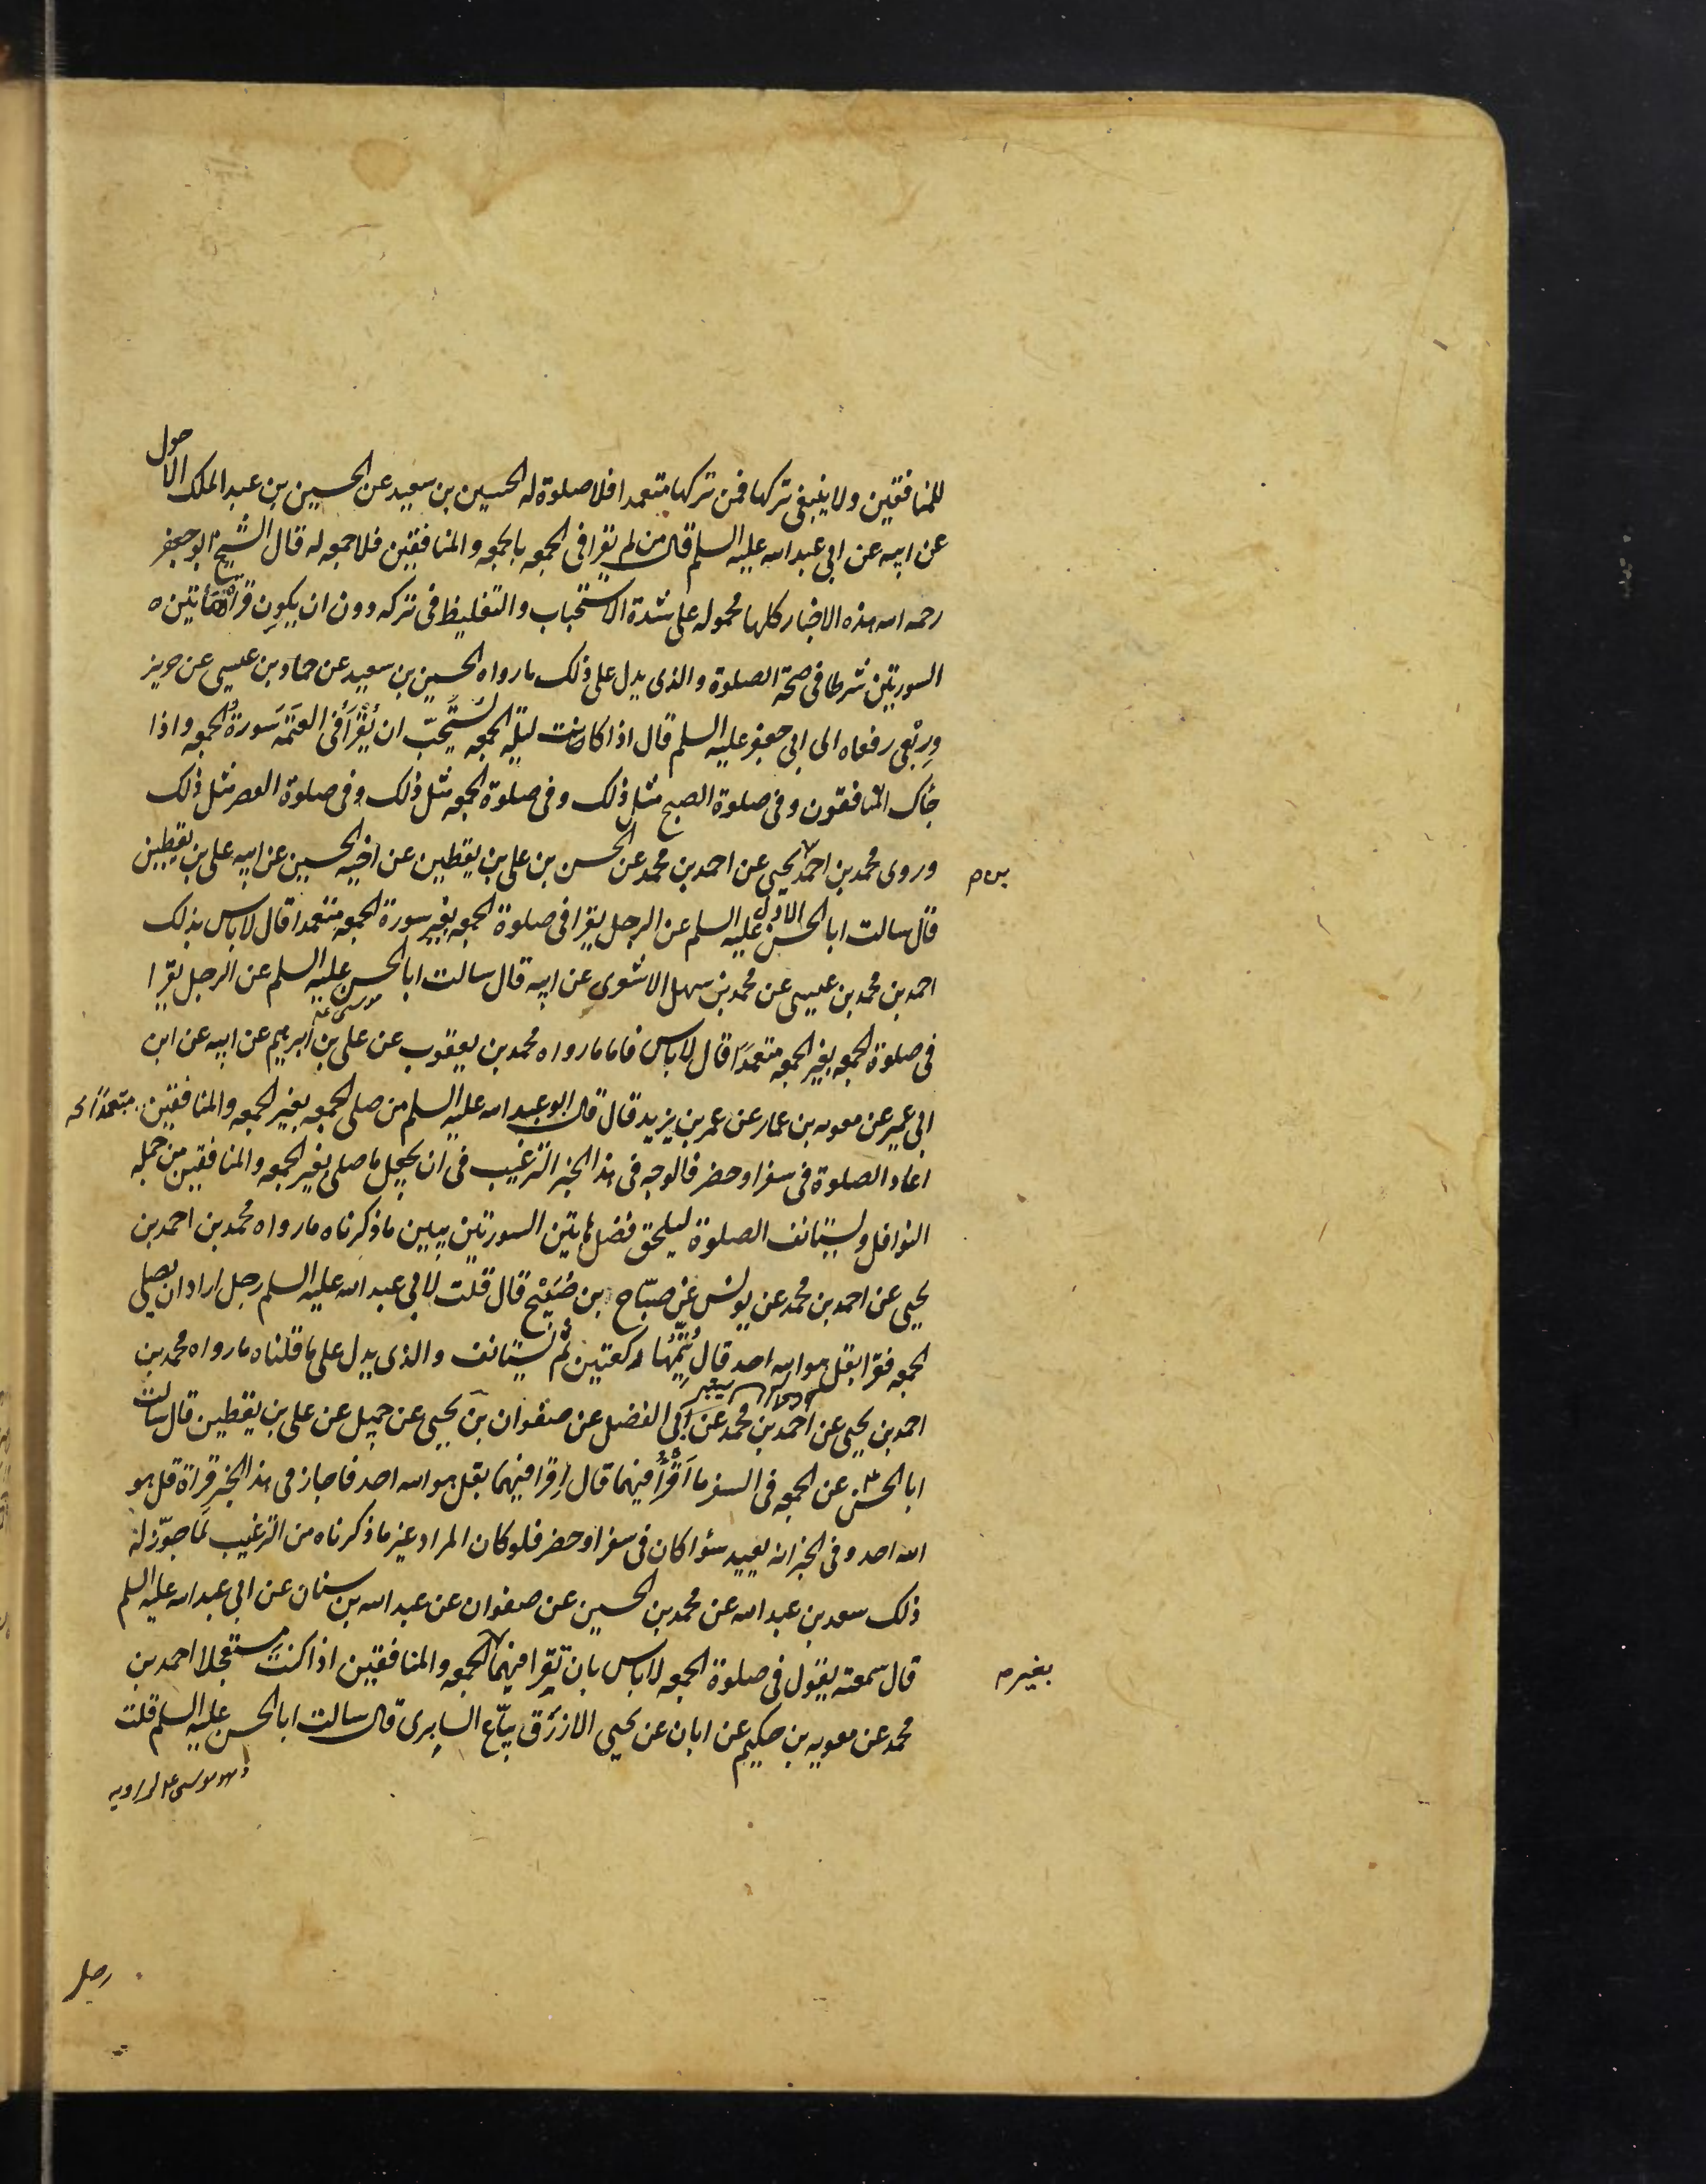 للمنافقين ولا ينبغي تركها فمن تركها متعمدا فلا صلوة له الحسين بن سعيد عن الحسين بن عبد الملك الاحول
عن ابيه عن ابي عبد الله عليه السلم قال من لم يقرا في الجمعه بالجمعه والمنافقين فلا جمعه له قال الشيخ ابو جعفر
رحمه الله هذه الاخبار كلها محموله على شدة الاستحباب والتغليظ في تركه دون ان يكون قراءة هاتين
السورتين شرطا في صحة الصلوة والذى يدل على ذلك ما رواه الحسين بن سعيد عن حماد بن عيسى عن حريز
ورِبْعى رفعاه الى ابي جعفر عليه السلم قال اذا كانت ليلة الجمعه يُستَحبّ ان يُقْرَأ في العَتَمَه سورةُ الجمعه واذا
جاك المنافقون وفى صلوة الصبح مثل ذلك وفى صلوة الجمعه مثل ذلك وفى صلوة العصر مثل ذلك
وروى محمد بن احمد يحيى عن احمد بن محمد عن الحسن بن على بن يقطين عن اخيه الحسين عن ابيه على بن يقطين
بن م
قال سالت ابا الحسن الاول عليه السلم عن الرجل يقرا فى صلوة الجمعه بغير سورة الجمعه متعمدا قال لا باس بذلك
احمد بن محمد بن عيسى عن محمد بن سهل الاشعرى عن ابيه قال سالت ابا الحسن عليه السلم عن الرجل يقرا
فى صلوة الجمعه بغير الجمعه متعمدًا قال لا باس فاما ما رواه محمد بن يعقوب عن على بن ابرهيم عن ابيه عن ابن
ابى عمير عن معويه بن عمار عن عمر بن يزيد قال قال ابو عبد الله عليه السلم من صلى الجمعه بغير الجمعه والمنافقين متعمدًا
اعاد الصلوة فى سفر او حضر فالوجه فى هذا الخبر الترغيب فى ان يجعل ما صلى بغير الجمعه والمنافقين من جمله
النوافل ويستانف الصلوة ليلحق فضل هاتين السورتين يبين ما ذكرناه ما رواه محمد بن احمد بن
يحيى عن احمد بن محمد عن يونس عن صبّاح بن صُبَيْح قال قلت لابى عبد الله عليه السلم رجل اراد ان يصلى
الجمعه فقرا بقل هو الله احد قال يُتِمُّها ركعتين ثُم يستانف والذى يدل على ما قلناه ما رواه محمد بن
احمد بن يحيى عن احمد بن محمد عن ابى الفضل عن صفوان بن يحيى عن جميل عن على بن يقطين قال سالت
ابا الحسن عن الجمعه فى السفر ما اَقْرَأُ فيهما قال اقرا فيهما بقل هو الله احد فاجاز فى هذا الخبر قراءة قل هو
الله احد وفى الخبر انه يعيد سؤا كان فى سفر او حضر فلو كان المراد غير ما ذكرناه من الترغيب لَما جوّز له
ذلك سعد بن عبد الله عن محمد بن الحسين عن صفوان عن عبد الله بن سنان عن ابى عبد الله عليه السلم
قال سمعته يقول فى صلوة الجمعه لا باس بان تقرا فيهما الجمعه والمنافقين اذا كنتَ مستعجلا احمد بن
بغير م
محمد عن معويه بن حكيم عن ابان عن يحيى الازْرَق بيّاع السابِرى قال سالت ابا الحسن عليه السلم قلت
رجل